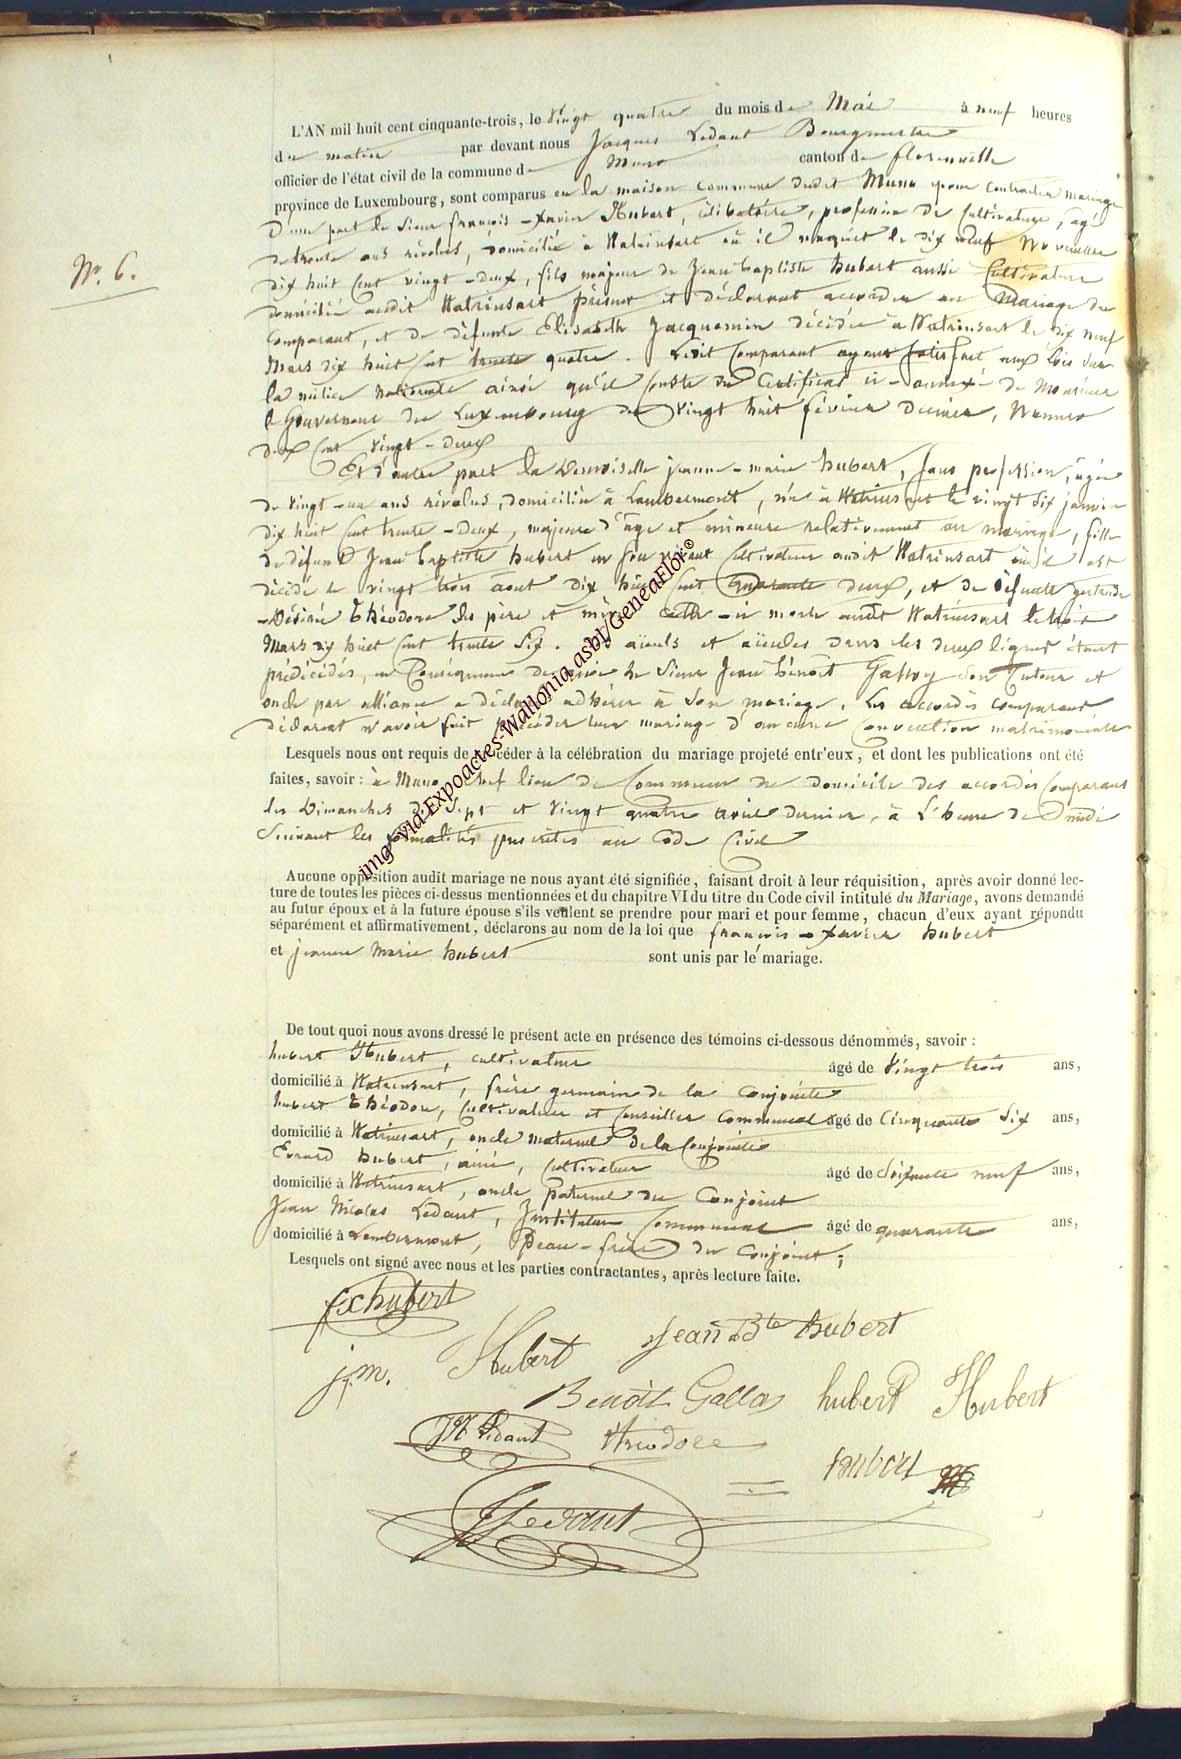 N.° 6.
L'AN mil huit cent cinquante-trois, le Vingt quatre du mois de Mai à neuf heures
du matin par devant nous Jacques Ledant Bourgmestre
officier de l'état civil de la commune de Muno canton de florenville
province de Luxembourg, sont comparus en la maison Commune dudit Muno pour contracter mariage
D'une part le Sieur françois-xavier Hubert, célibataire, profession de Cultivateur, agé
de trente ans révolus, domicilié à Watrinsart où il naquit le dix neuf Novembre
dix huit Cent vingt-deux, fils majeur de Jean baptiste hubert aussi Cultivateur
domicilié audit Watrinsart présent et déclarant accorder au Mariage du
Comparant, et de défunte Elisabeth Jacquemin décédée à Watrinsart le dix neuf
Mars dix huit Cent trente quatre. Ledit Comparant ayant satisfait aux lois sur
la milice nationale ainsi qu'il Conste du Certificat ci-annexé de Monsieur
le Gouverneur du Luxembourg du Vingt huit février dernier, Numéro
deux Cent Vingt-deux
Et d'autre part la Demoiselle jeanne-marie hubert, sans profession, agée
de Vingt-un ans révolus, domiciliée à Lambermont, née à Watrinsart le vingt six janvier
dix huit Cent trente-deux, majeure d'âge et mineure relativement au mariage, fille
de défunt Jean baptiste hubert en son vivant Cultivateur audit Watrinsart où il est
décédé le vingt trois aout dix huit Cent quarante deux, et de défunte gertrude
-Désirée Théodore ses père et mère celle-ci morte audit Watrinsart le trois
Mars dix huit Cent trente Six. aïeuls et aïeules dans les deux lignes étant
prédécédés, en Conséquence de quoi le Sieur Jean benoit Galloy Son Tuteur et
oncle par alliance a déclaré adhérer à Son mariage. Les accordés comparant
déclarant n'avoir fait précéder leur mariage d'aucune Convention matrimoniale
Lesquels nous ont requis de procéder à la célébration du mariage projeté entr'eux, et dont les publications ont été
faites, savoir: à Muno, chef lieu de Commune du domicile des accordés Comparant
les Dimanches dix Sept et Vingt quatre avril dernier, à L'heure de midi
Suivant les formalités prescrites au Code Civil
Aucune opposition audit mariage ne nous ayant été signifiée, faisant droit à leur réquisition, après avoir donné lec-
ture de toutes les pièces ci-dessus mentionnées et du chapitre VI du titre du Code civil intitulé du Mariage, avons demandé
au futur époux et à la future épouse s'ils veulent se prendre pour mari et pour femme, chacun d'eux ayant répondu
séparément et affirmativement, déclarons au nom de la loi que françois-xavier hubert
et jeanne Marie hubert sont unis par le mariage.
De tout quoi nous avons dressé le présent acte en présence des témoins ci-dessous dénommés, savoir :
hubert Hubert, cultivateur âgé de Vingt trois ans,
domicilié à Watrinsart, frère germain de la Conjointe
hubert Théodore, Cultivateur et Conseiller Communal âgé de Cinquante Six ans,
domicilié à Watrinsart, oncle maternel de la Conjointe
Evrard hubert, ainé, Cultivateur âgé de Soixante neuf ans,
domicilié à Watrinsart, oncle paternel du Conjoint
Jean Nicolas Ledant, Instituteur Communal âgé de quarante ans,
domicilié à Lambermont, beau-frère du Conjoint;
Lesquels ont signé avec nous et les parties contractantes, après lecture faite.
fxhubert
j.m. Hubert Jean Bte hubert
Benoit Gallas hubert Hubert
JN Ledant théodore
hubert
J Ledant
img via Expoactes-Wallonia asbl/GeneaFlor©